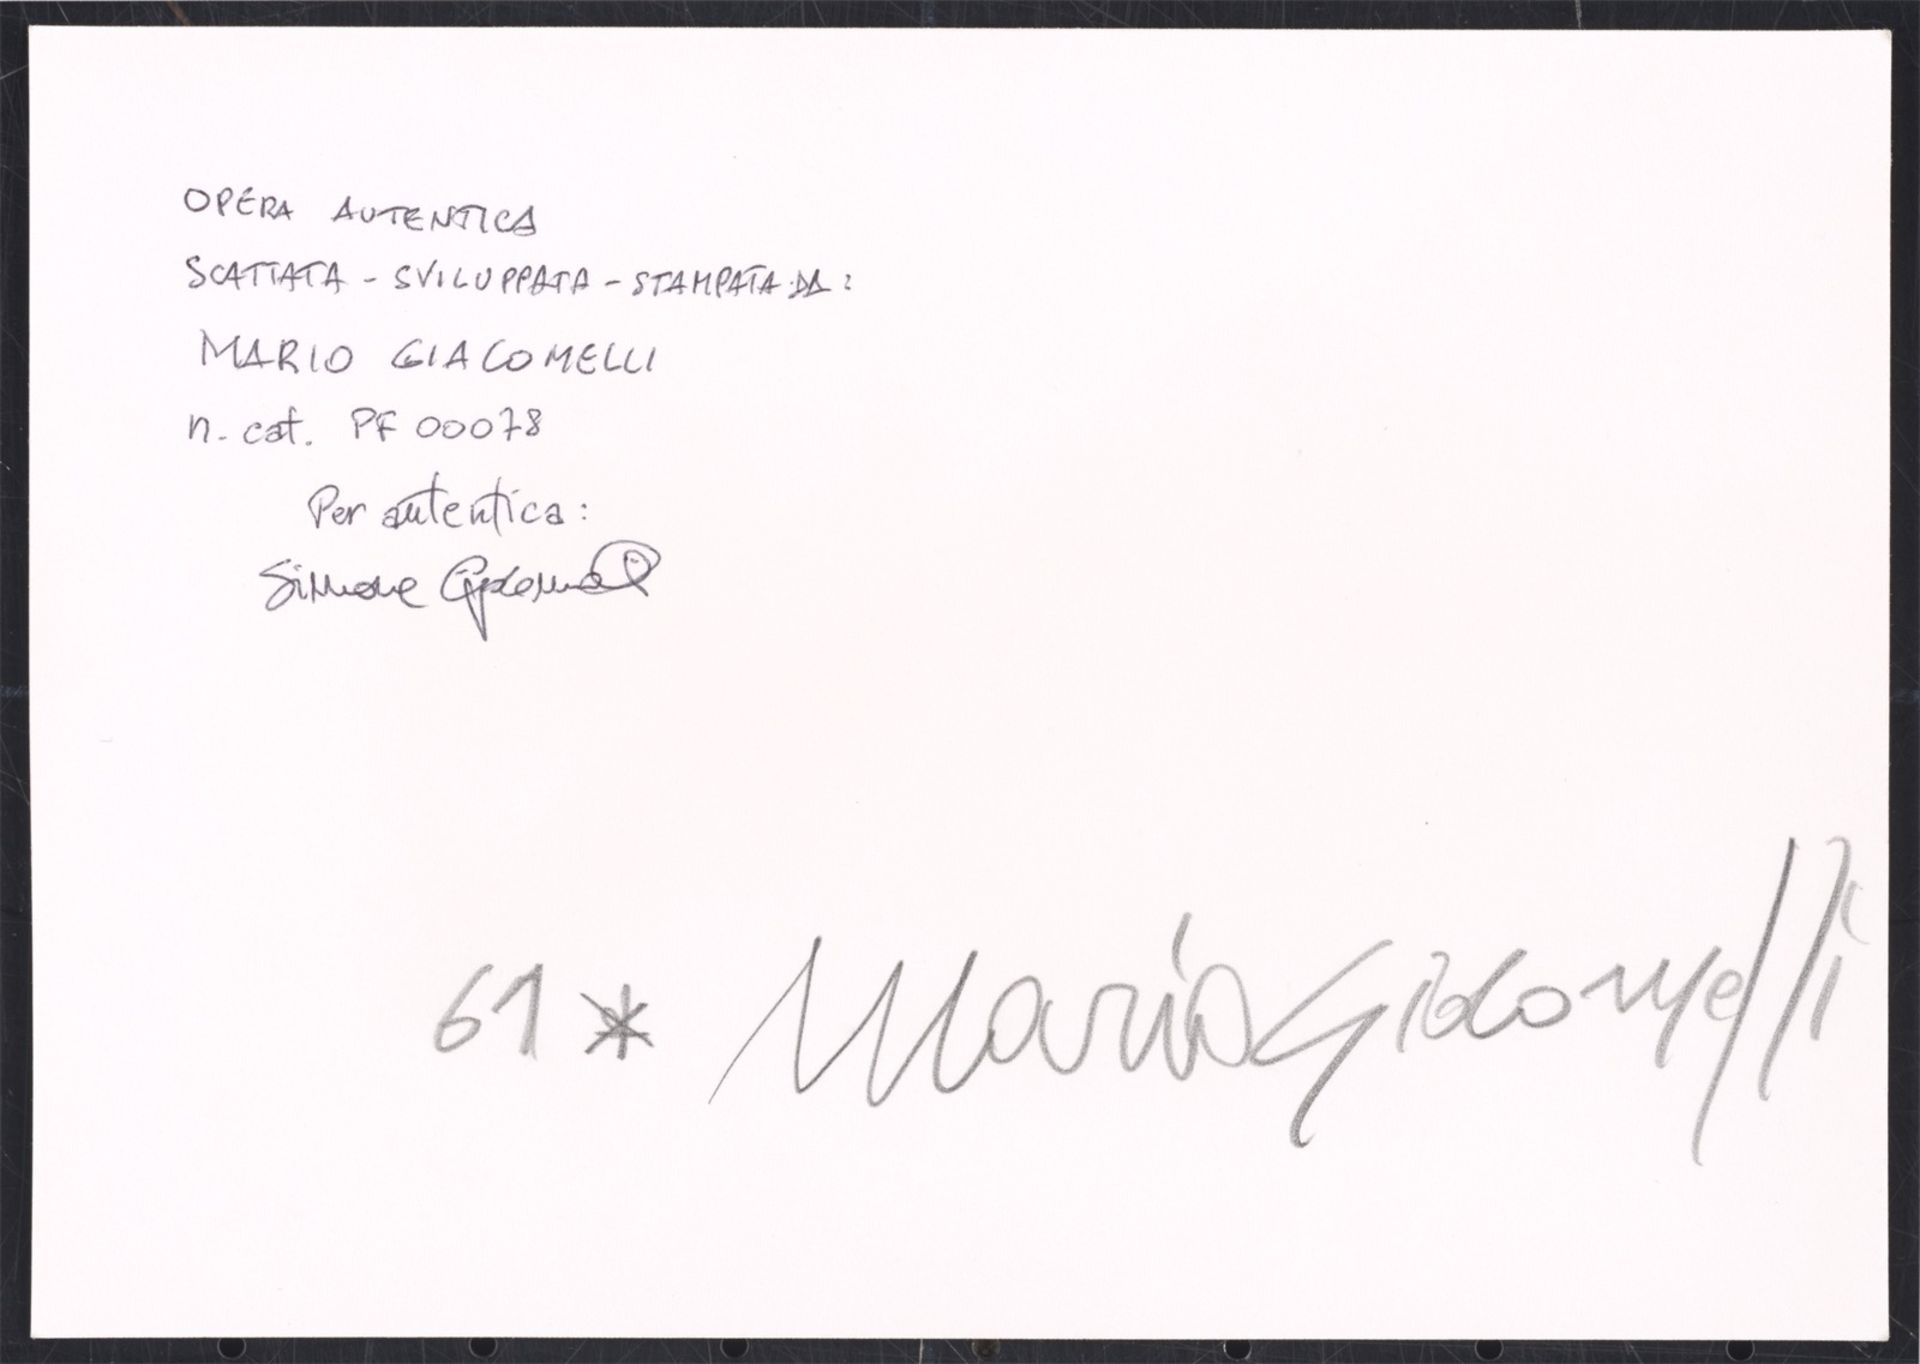 OPERA AUTENTICA
SCATTATA - SVILUPPATA - STAMPATA DA:
MARIO GIACOMELLI
n. cat. PF 00078
Per autentica:
Simone Giacomelli
61 * Mario Giacomelli